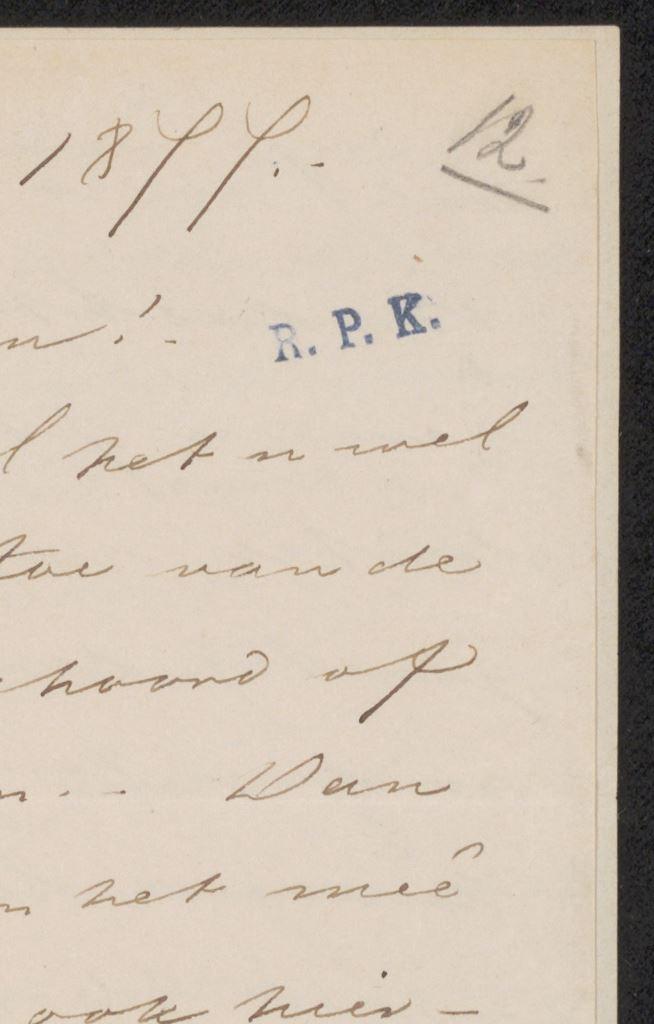 1877.-
12
n!-
R. P. K.
l het u wel
toe van de
hoord of
n.- Dan
n het meê
ook hier-